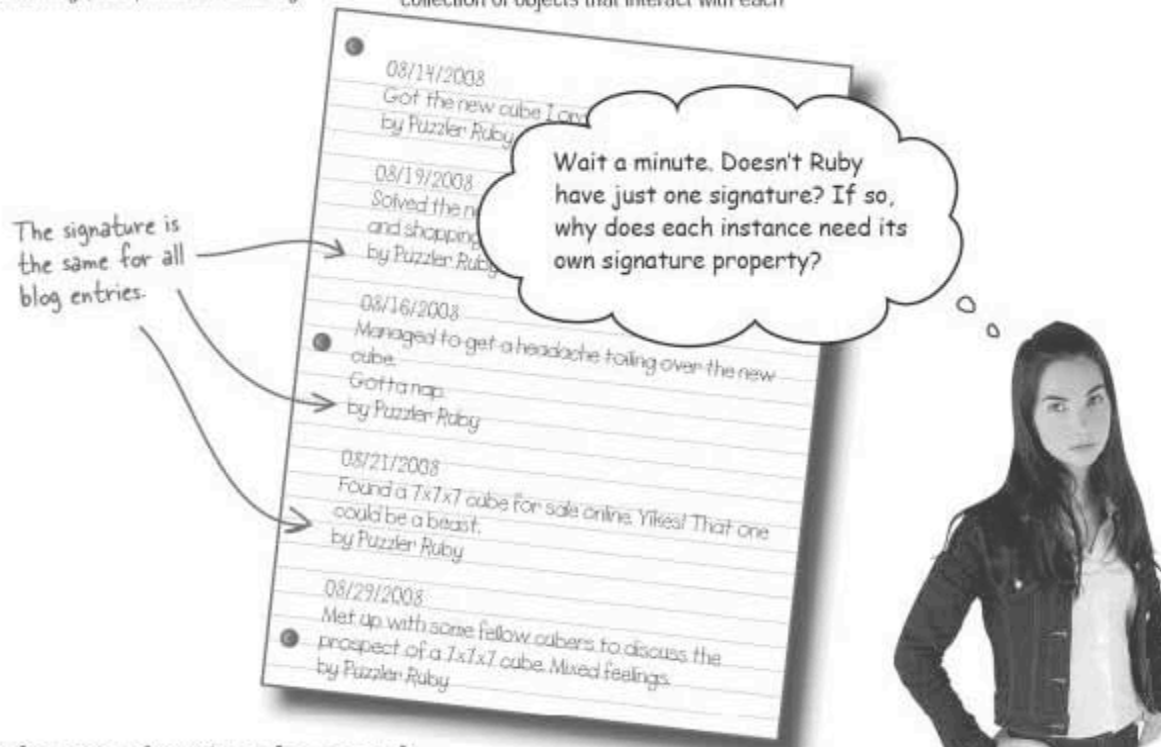 collection of objects that interact with each
08/14/2008
Got the new cube I
by Puzzler Ruby
08/19/2008
Solved the
and shopping
by Puzzler Ruby
08/16/2008
Managed to get a headache toiling over the new
cube.
Gotta nap.
by Puzzler Ruby
08/21/2008
Found a 7x7x7 cube for sale online. Yikes! That one
could be a beast.
by Puzzler Ruby
08/29/2008
Met up with some fellow cubers to discuss the
prospect of a 7x7x7 cube. Mixed feelings.
by Puzzler Ruby
Wait a minute. Doesn't Ruby
have just one signature? If so,
why does each instance need its
own signature property?
The signature is
the same for all
blog entries.